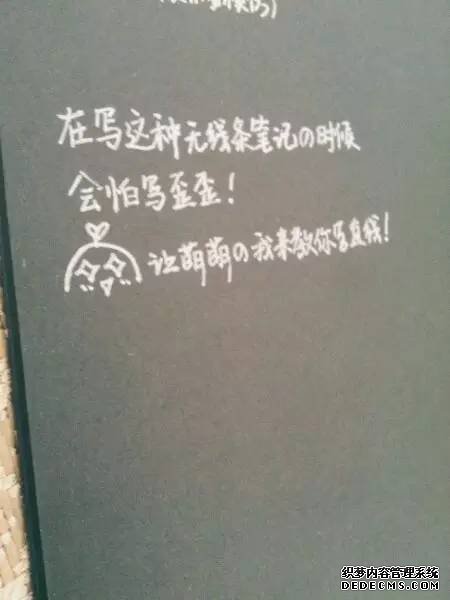 在写这种无线条笔记の时候
会怕写歪歪！
让萌萌の我来教你写直线！
织梦内容管理系统
DEDECMS.COM